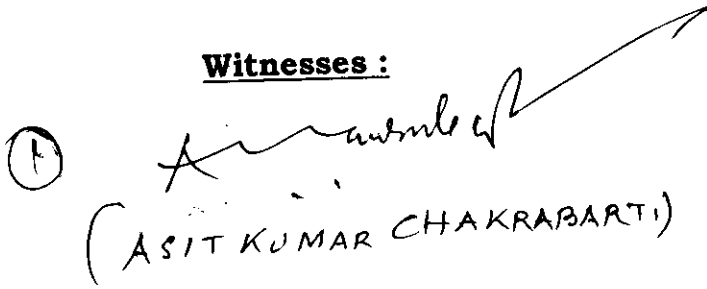 Witnesses :
1
(ASIT KUMAR CHAKRABARTI)